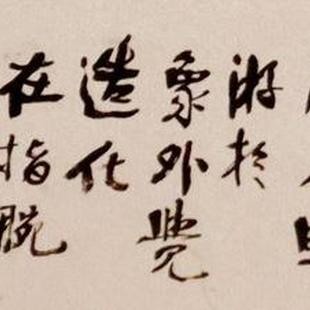 游於
象外覺
造化
在指腕